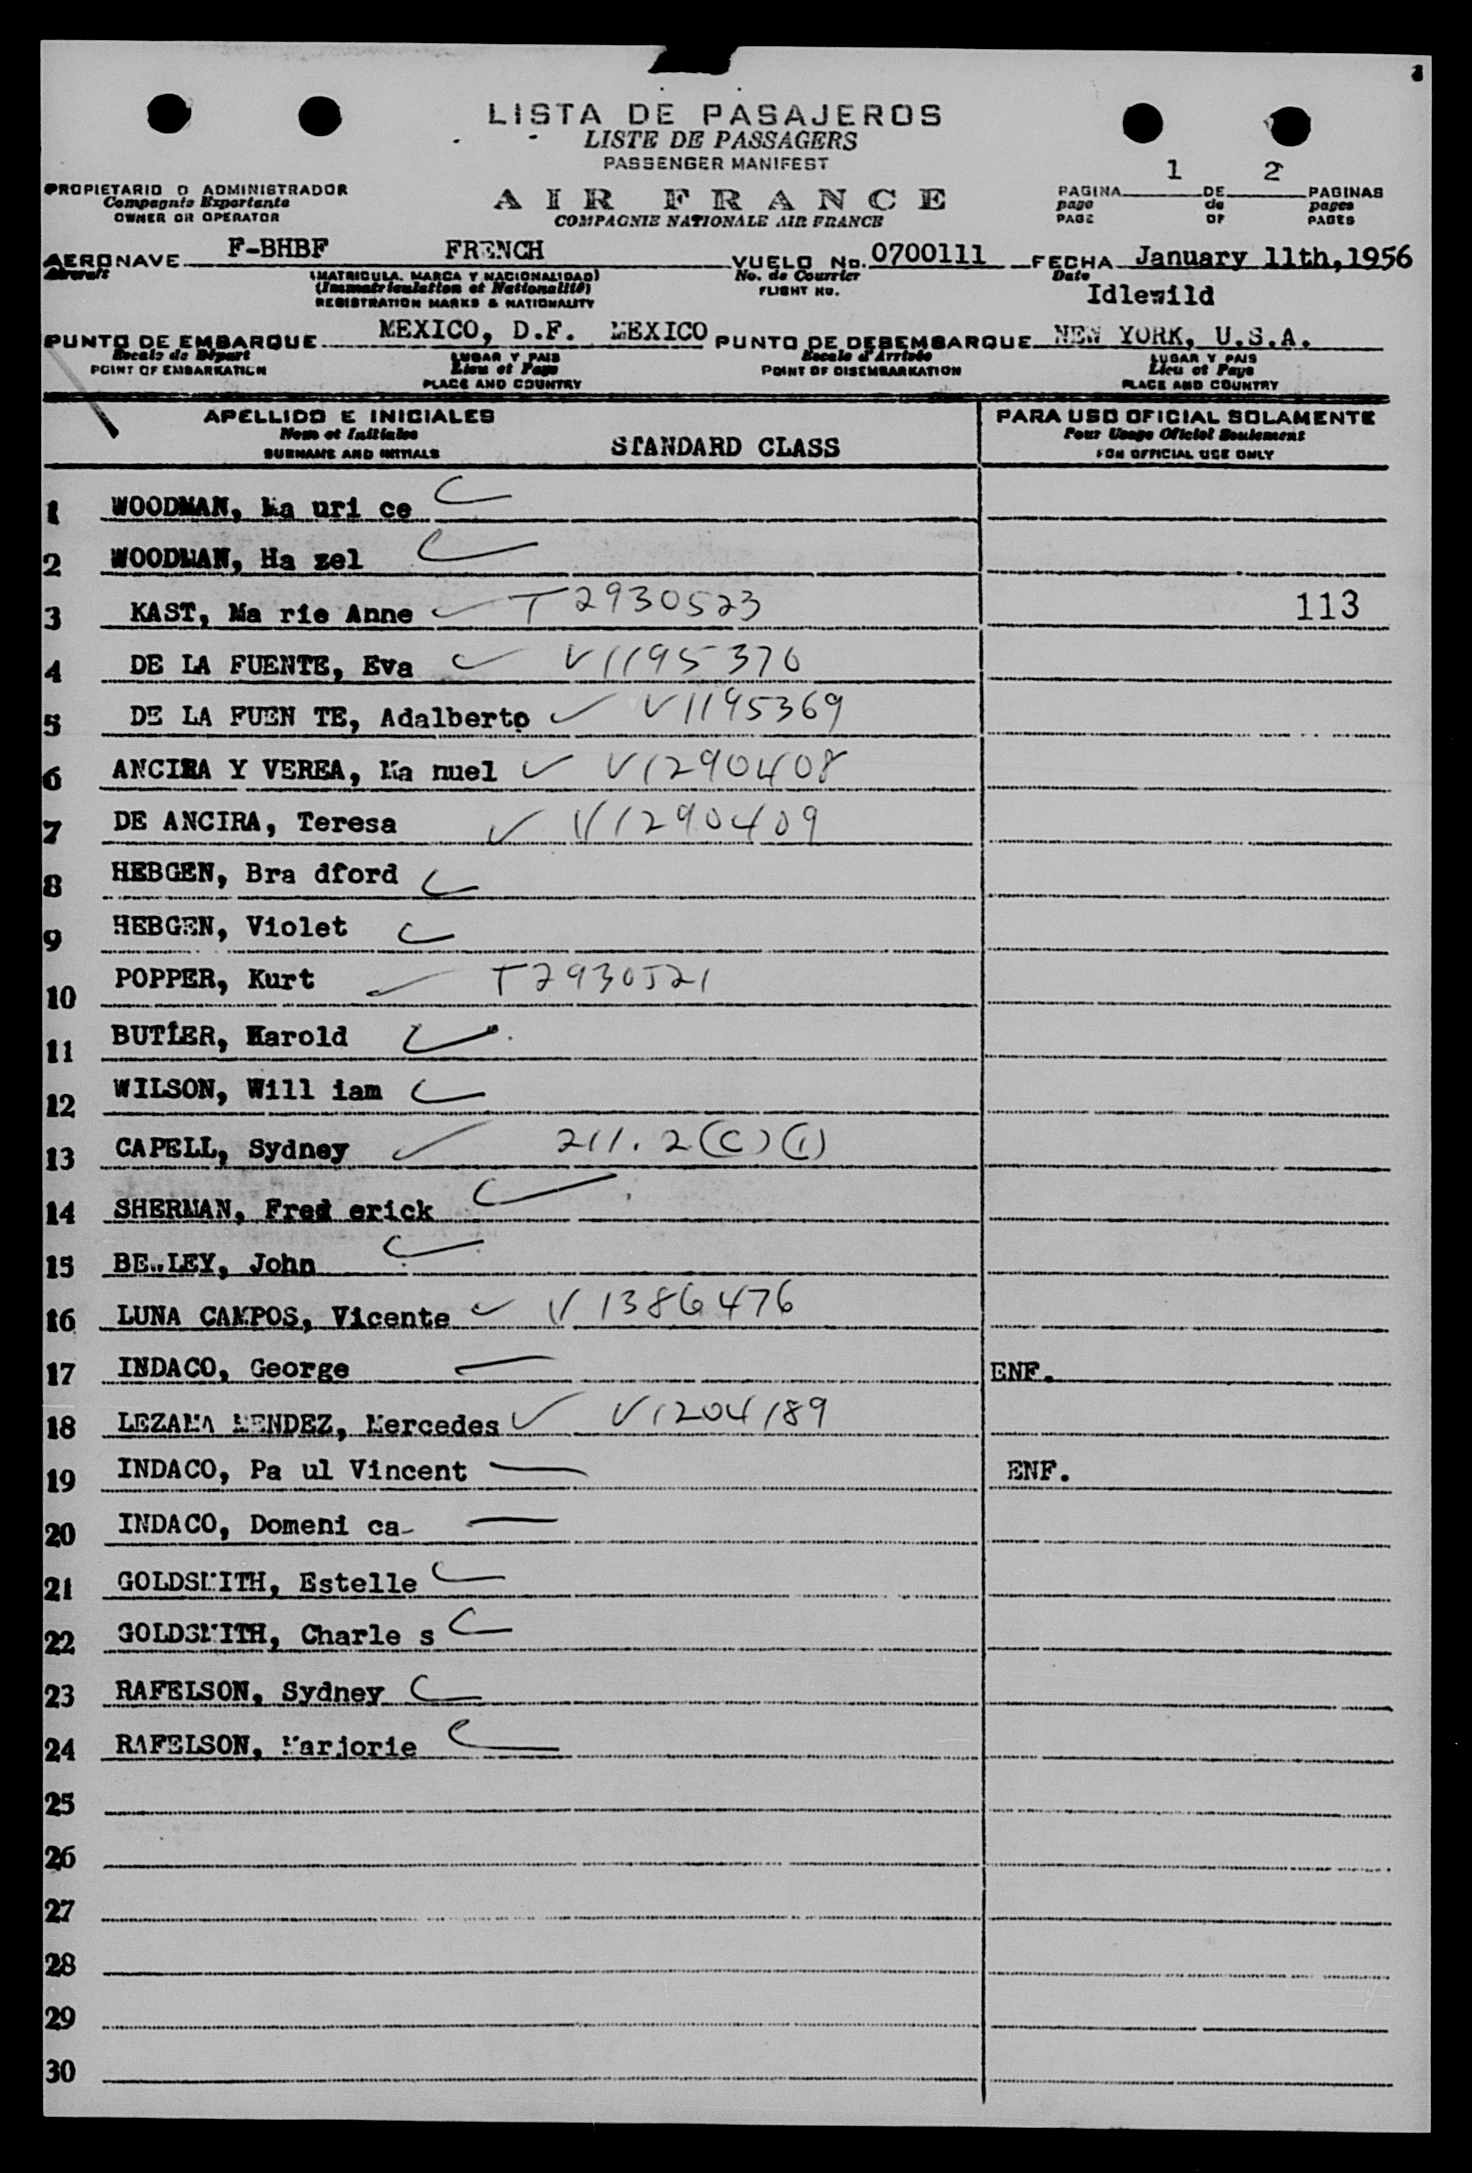 LISTA DE PASAJEROS
LISTE DE PASSAGERS
PASSENGER MANIFEST
PROPIETARIO O ADMINISTRADOR
Compagnie Exportante
OWNER OR OPERATOR
AIR FRANCE
COMPAGNIE NATIONALE AIR FRANCE
PAGINA 1 DE 2 PAGINAS
page de pages
PAGE OF PAGES
AERONAVE F-BHBF FRENCH VUELO No. 0700111 FECHA January 11th,1956
Aircraft (MATRICULA, MARCA Y NACIONALIDAD) No. de Courrier Date
(Immatriculation et Nationalité) FLIGHT NO. Idlewild
REGISTRATION MARKS & NATIONALITY
PUNTO DE EMBARQUE MEXICO, D.F. MEXICO PUNTO DE DESEMBARQUE NEW YORK, U.S.A.
Escale de Départ LUGAR Y PAIS Escale d'Arrivée LUGAR Y PAIS
POINT OF EMBARKATION Lieu et Pays POINT OF DISEMBARKATION Lieu et Pays
PLACE AND COUNTRY PLACE AND COUNTRY
APELLIDO E INICIALES PARA USO OFICIAL SOLAMENTE
Nom et Initiales STANDARD CLASS Pour Usage Oficiel Seulement
SURNAME AND INITIALS FOR OFFICIAL USE ONLY
1 WOODMAN, Ma uri ce
2 WOODMAN, Ha zel
3 KAST, Ma rie Anne T 2930523 113
4 DE LA FUENTE, Eva V1195370
5 DE LA FUEN TE, Adalberto V1195369
6 ANCIRA Y VEREA, Ma nuel V1290408
7 DE ANCIRA, Teresa V1290409
8 HEBGEN, Bra dford
9 HEBGEN, Violet
10 POPPER, Kurt T2930521
11 BUTLER, Harold
12 WILSON, Will iam
13 CAPELL, Sydney 211.2(C)(1)
14 SHERMAN, Fred erick
15 BE LEY, John
16 LUNA CAMPOS, Vicente V1386476
17 INDACO, George ENF.
18 LEZAMA MENDEZ, Mercedes V1204189
19 INDACO, Pa ul Vincent ENF.
20 INDACO, Domeni ca
21 GOLDSMITH, Estelle
22 GOLDSMITH, Charle s
23 RAFELSON, Sydney
24 RAFELSON, Marjorie
25
26
27
28
29
30